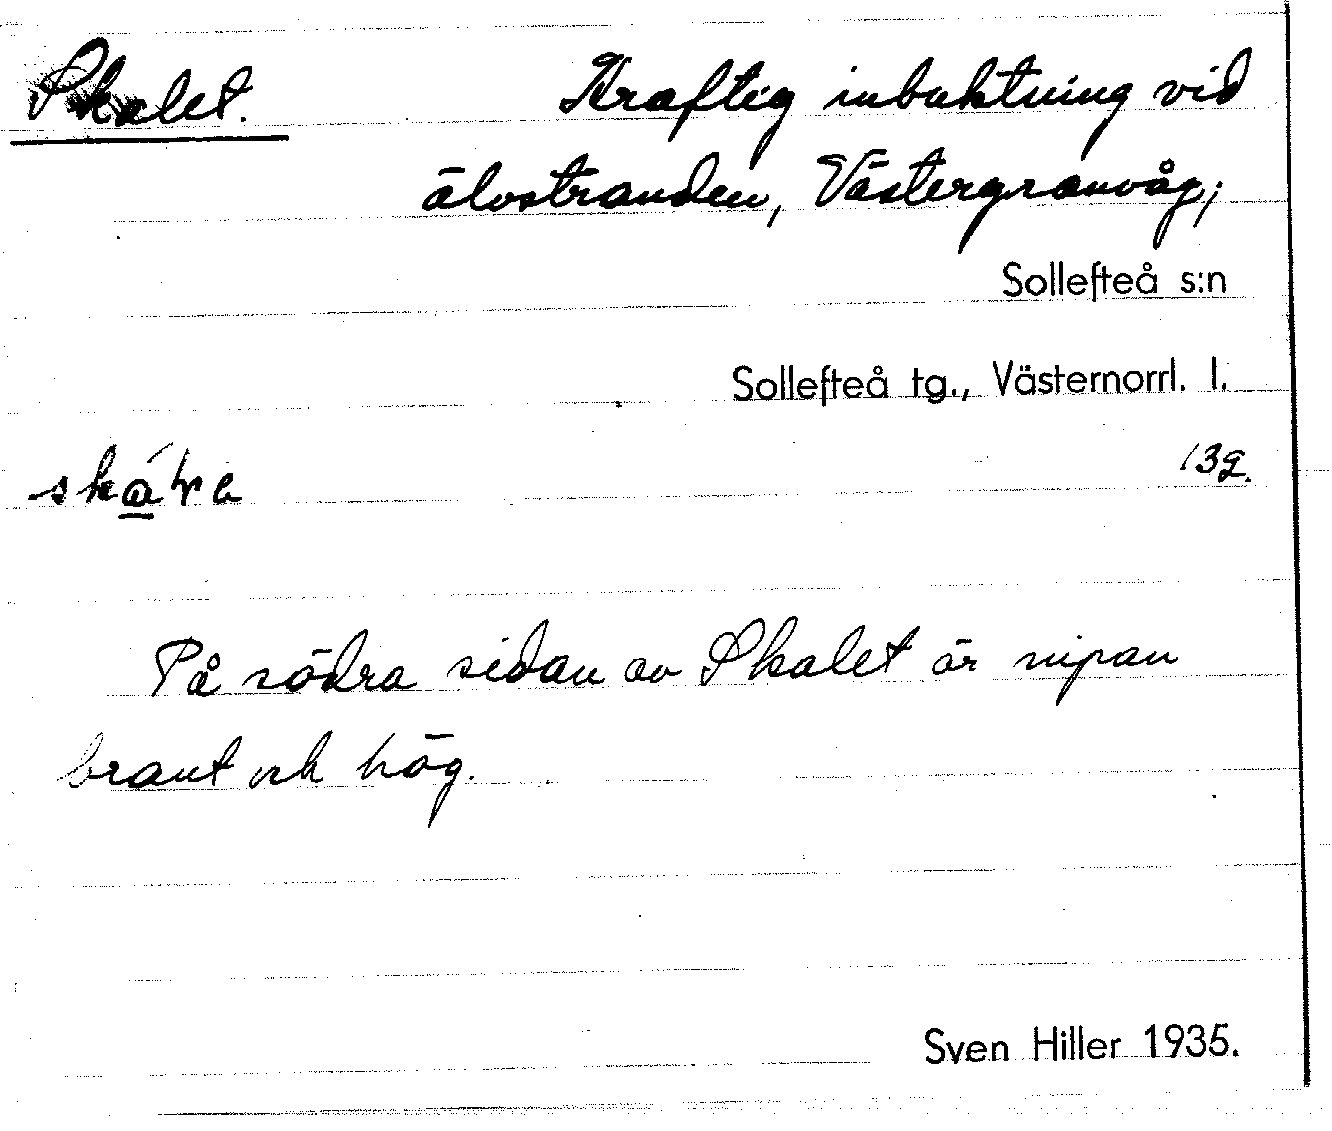 Skalet. Kraftig inbuktning vid
älvstranden, Västergranvåg,
Sollefteå s:n
Sollefteå tg., Västernorrl. l.
139.
På södra sidan av Skalet är nipan
brant och hög.
Sven Hiller 1935.